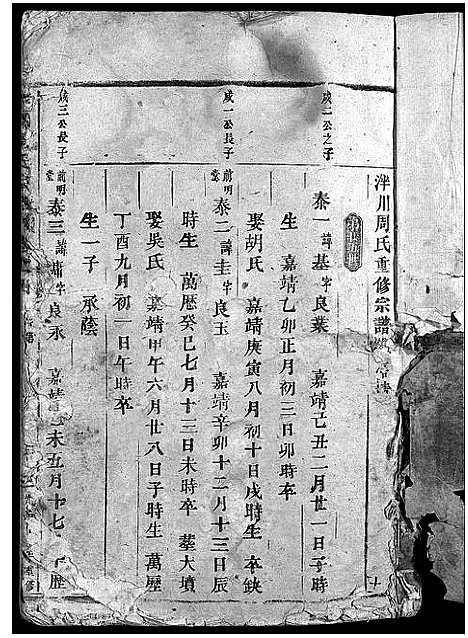 泮川周氏重修宗譜
成二公之子
泰一 諱基字良業 嘉靖己丑二月廿一日子時
生 嘉靖乙卯正月初三日卯時卒
娶胡氏 嘉靖庚寅八月初十日戌時生 卒缺
成一公長子
前明 泰二 諱圭字良玉 嘉靖辛卯十二月十三日辰
時生 萬歷癸巳七月十三日未時卒 塟大墳
娶吳氏 嘉靖甲午六月廿八日子時生 萬歷
丁酉九月初一日午時卒
生一子 承蔭
成三公長子
前明堂 泰三 諱庸字良永 嘉靖 未五月十七 歷